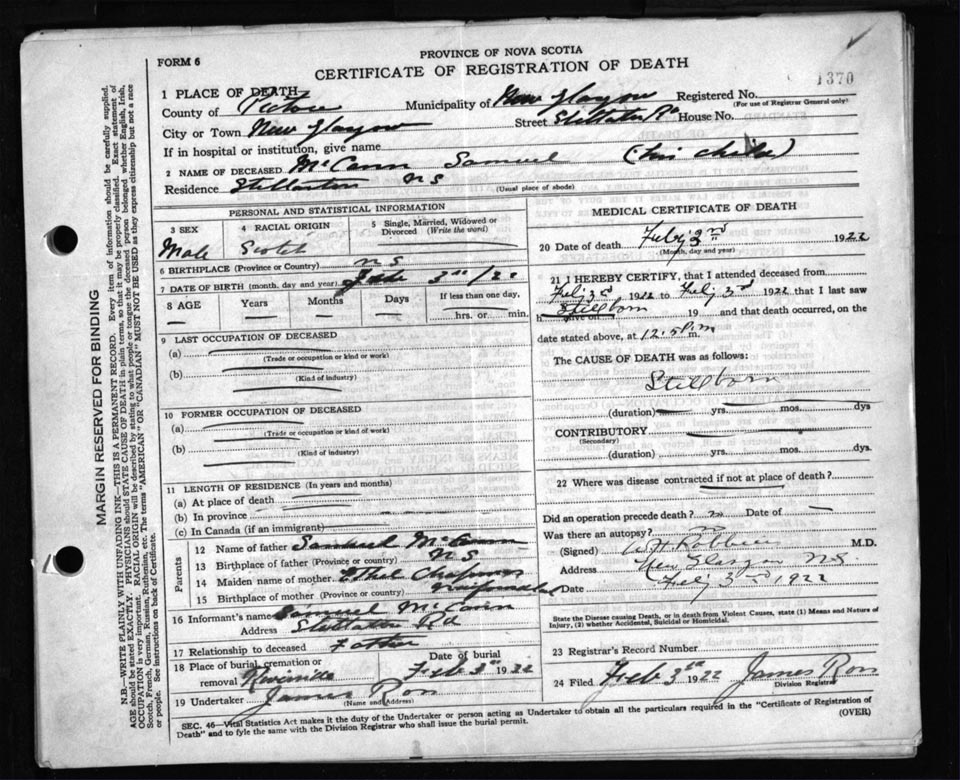 PROVINCE OF NOVA SCOTIA
FORM 6
CERTIFICATE OF REGISTRATION OF DEATH
1370
1 PLACE OF DEATH
County of Pictou Municipality of New Glasgow Registered No.
(For use of Registrar General only)
City or Town New Glasgow Street Stellarton Rd House No.
If in hospital or institution, give name
2 NAME OF DECEASED McCann Samuel (his child)
Residence Stellarton NS (Usual place of abode)
PERSONAL AND STATISTICAL INFORMATION
3 SEX 4 RACIAL ORIGIN 5 Single, Married, Widowed or Divorced (Write the word)
Male Scotch
6 BIRTHPLACE (Province or Country) NS
7 DATE OF BIRTH (month, day and year) Feb 3rd /22
8 AGE Years Months Days If less than one day,
— — — — hrs. or min.
9 LAST OCCUPATION OF DECEASED
(a)
(Trade or occupation or kind or work)
(b)
(Kind of industry)
10 FORMER OCCUPATION OF DECEASED
(a)
(Trade or occupation or kind of work)
(b)
(Kind of industry)
11 LENGTH OF RESIDENCE (In years and months)
(a) At place of death
(b) In province
(c) In Canada (if an immigrant)
Parents
12 Name of father Samuel McCann
13 Birthplace of father (Province or country) NS
14 Maiden name of mother Ethel Chapman
15 Birthplace of mother (Province or country)
16 Informant's name Samuel McCann
Address Stellarton Rd
17 Relationship to deceased Father
18 Place of burial, cremation or Date of burial
removal Riverside Feb 3rd 1922
19 Undertaker James Ross
(Name and Address)
MEDICAL CERTIFICATE OF DEATH
20 Date of death Feby 3rd 1922
(Month, day and year)
21 I HEREBY CERTIFY, that I attended deceased from
Feby 3rd 1922 to Feby 3rd 1922 that I last saw
h alive on Stillborn 19 and that death occurred, on the
date stated above, at 12.5 P.m
The CAUSE OF DEATH was as follows:
Stillborn
(duration) yrs. mos. dys
CONTRIBUTORY
(Secondary)
(duration) yrs. mos. dys.
22 Where was disease contracted if not at place of death?
Did an operation precede death? no Date of —
Was there an autopsy? no
(Signed) M.D.
Address New Glasgow NS
Date Feby 3rd 1922
State the Disease causing Death, or in death from Violent Causes, state (1) Means and Nature of
Injury, (2) whether Accidental, Suicidal or Homicidal.
23 Registrar's Record Number
24 Filed Feb 3rd 1922 James Ross
Division Registrar
SEC. 46—Vital Statistics Act makes it the duty of the Undertaker or person acting as Undertaker to obtain all the particulars required in the "Certificate of Registration of
Death" and to fyle the same with the Division Registrar who shall issue the burial permit. (OVER)
MARGIN RESERVED FOR BINDING
N.B.—WRITE PLAINLY WITH UNFADING INK—THIS IS A PERMANENT RECORD. Every item of information should be carefully supplied.
AGE should be stated EXACTLY. PHYSICIANS should STATE CAUSE OF DEATH in plain terms, so that it may be properly classified. Exact statement of
OCCUPATION is very important. RACIAL ORIGIN will be described by stating to what people or tongue the deceased person belonged whether English, Irish,
Scotch, French, German, Russian, Ruthenian, etc. The terms "AMERICAN" OR "CANADIAN" MUST NOT BE USED as they express citizenship but not a race
or people. See instructions on back of Certificate.